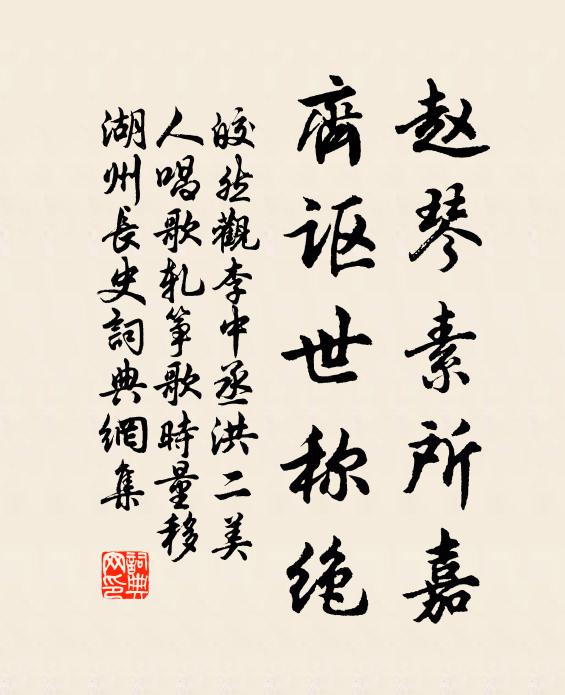 赵琴素所嘉
齊讴世称绝
皎然觀李中丞洪二美
人唱歌轧筝歌時量移
湖州長史詞典網集
詞典
网印